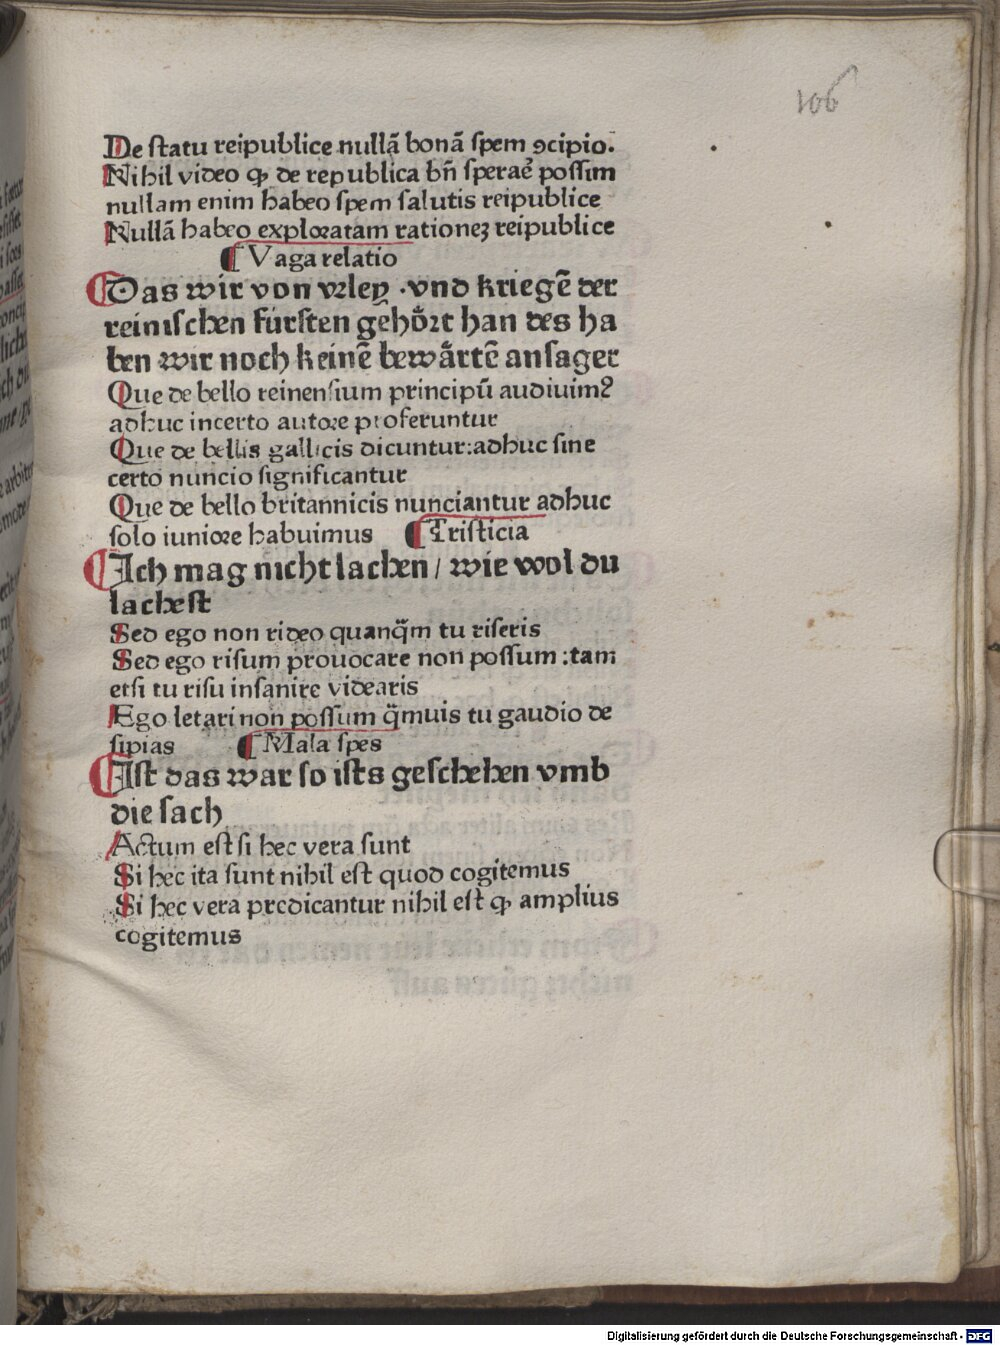 106
De statu reipublice nullā bonā spem ꝯcipio.
Nihil video ꝙ de republica bn̄ sperae᷒ possim
nullam enim habeo spem salutis reipublice
Nullā habeo exploratam rationeꝫ reipublice
¶ Vaga relatio
Das wir von vrley ·vnd kriegē der
reinischen fürsten gehoͤrt han des ha
ben wir noch keinē bewaͤrtē ansager
Que de bello reinensium principū audiuimꝰ
adhuc incerto autore proferuntur
Que de bellis gallicis dicuntur:adhuc sine
certo nuncio significantur
Que de bello britannicis nunciantur adhuc
solo iuniore habuimus ¶ Tristicia
Ich mag nicht lachen / wie wol du
lachest
Sed ego non rideo quanq̄m tu riseris
Sed ego risum prouocare non possum :tam
etsi tu risu insanire videaris
Ego letari non possum q̄muis tu gaudio de
sipias ¶ Mala spes
Ist das war so ists geschehen vmb
die sach
Actum est si hec vera sunt
Si hec ita sunt nihil est quod cogitemus
Si hec vera predicantur nihil est ꝙ amplius
cogitemus
Digitalisierung gefördert durch die Deutsche Forschungsgemeinschaft - DFG